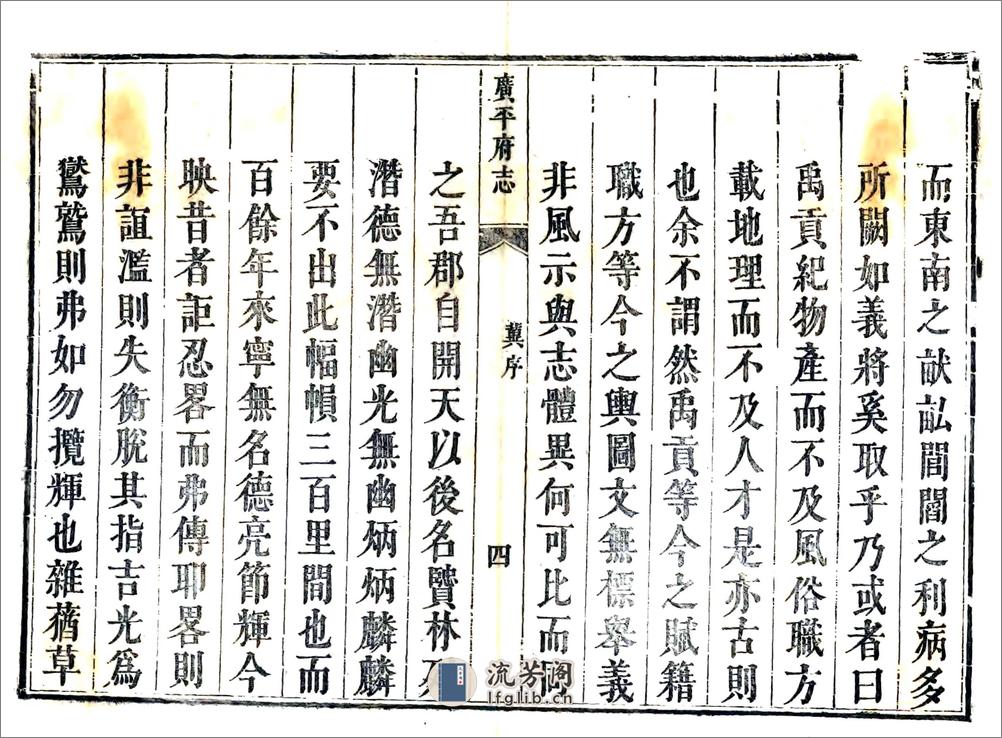 而東南之畎畆閭閻之利病多
所闕如義將奚取乎乃或者曰
禹貢紀物產而不及風俗職方
載地理而不及人才是亦古則
也余不謂然禹貢等今之賦籍
職方等今之輿圖文無標舉義
非風示與志體異何可比而
廣平府志
冀序
四
之吾郡自開天以後名賢林
潛德無潛幽光無幽炳炳麟麟
要不出此幅幀三百里間也而
百餘年來寧無名德亮節輝今
映昔者詎忍畧而弗傳耶畧則
非誼濫則失衡脫其指吉光爲
鸑鷟則弗如勿攬輝也雜蕕草
流芳阁
lfglib.cn